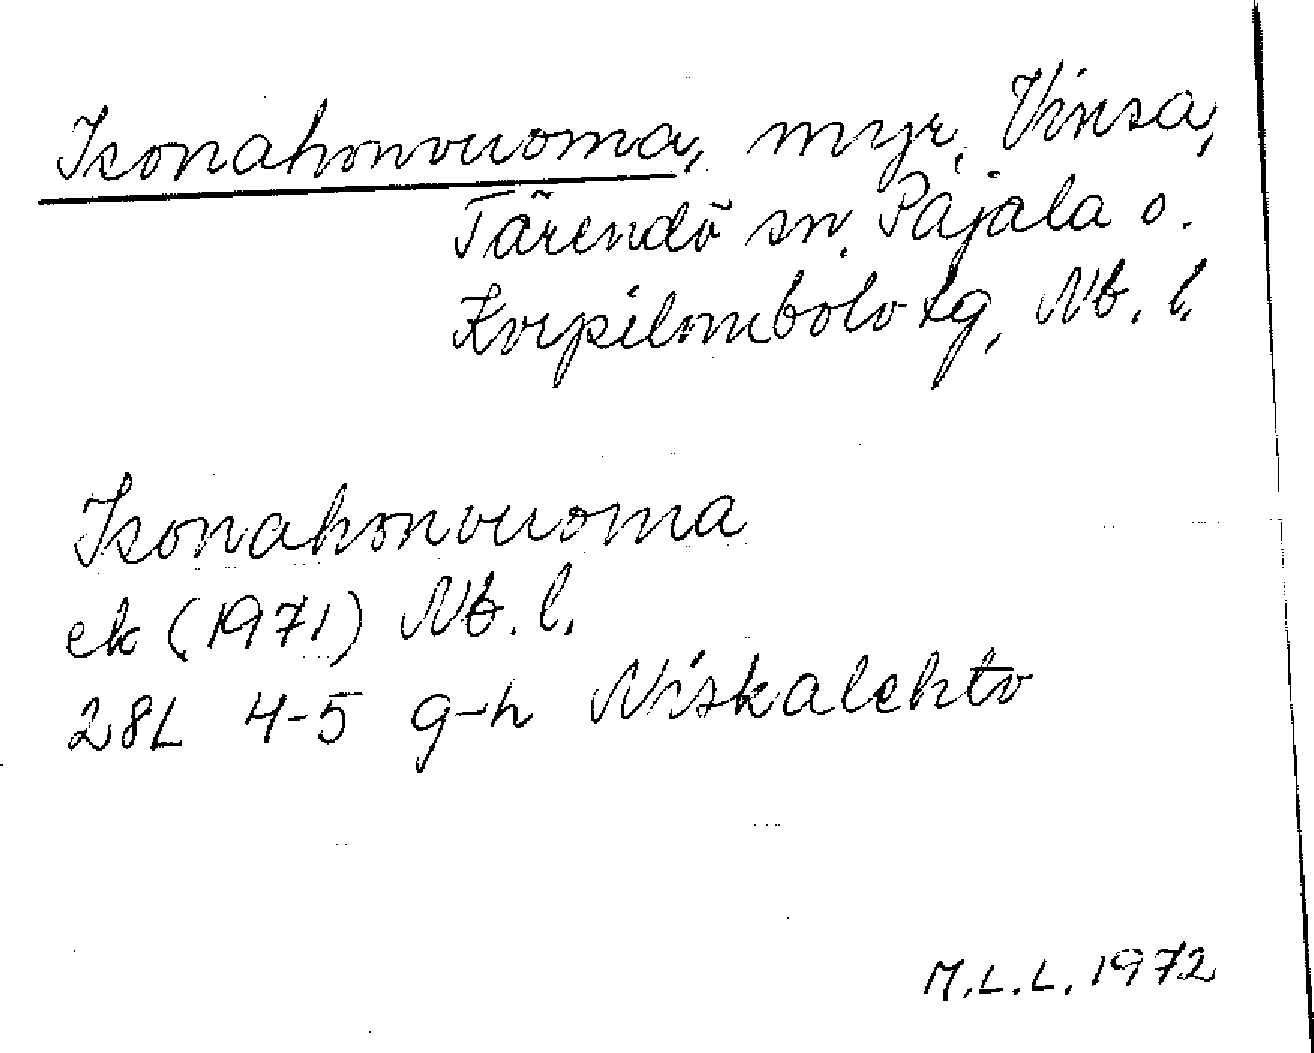 Isonahonvuoma, myr, Vinsa,
Tärendö sn, Pajala o.
Korpilombolo tg, Nb. l.
Isonahonvuoma
ek (1971) Nb. l.
28L 4-5 g-h Niskalehto
M.L.L. 1972